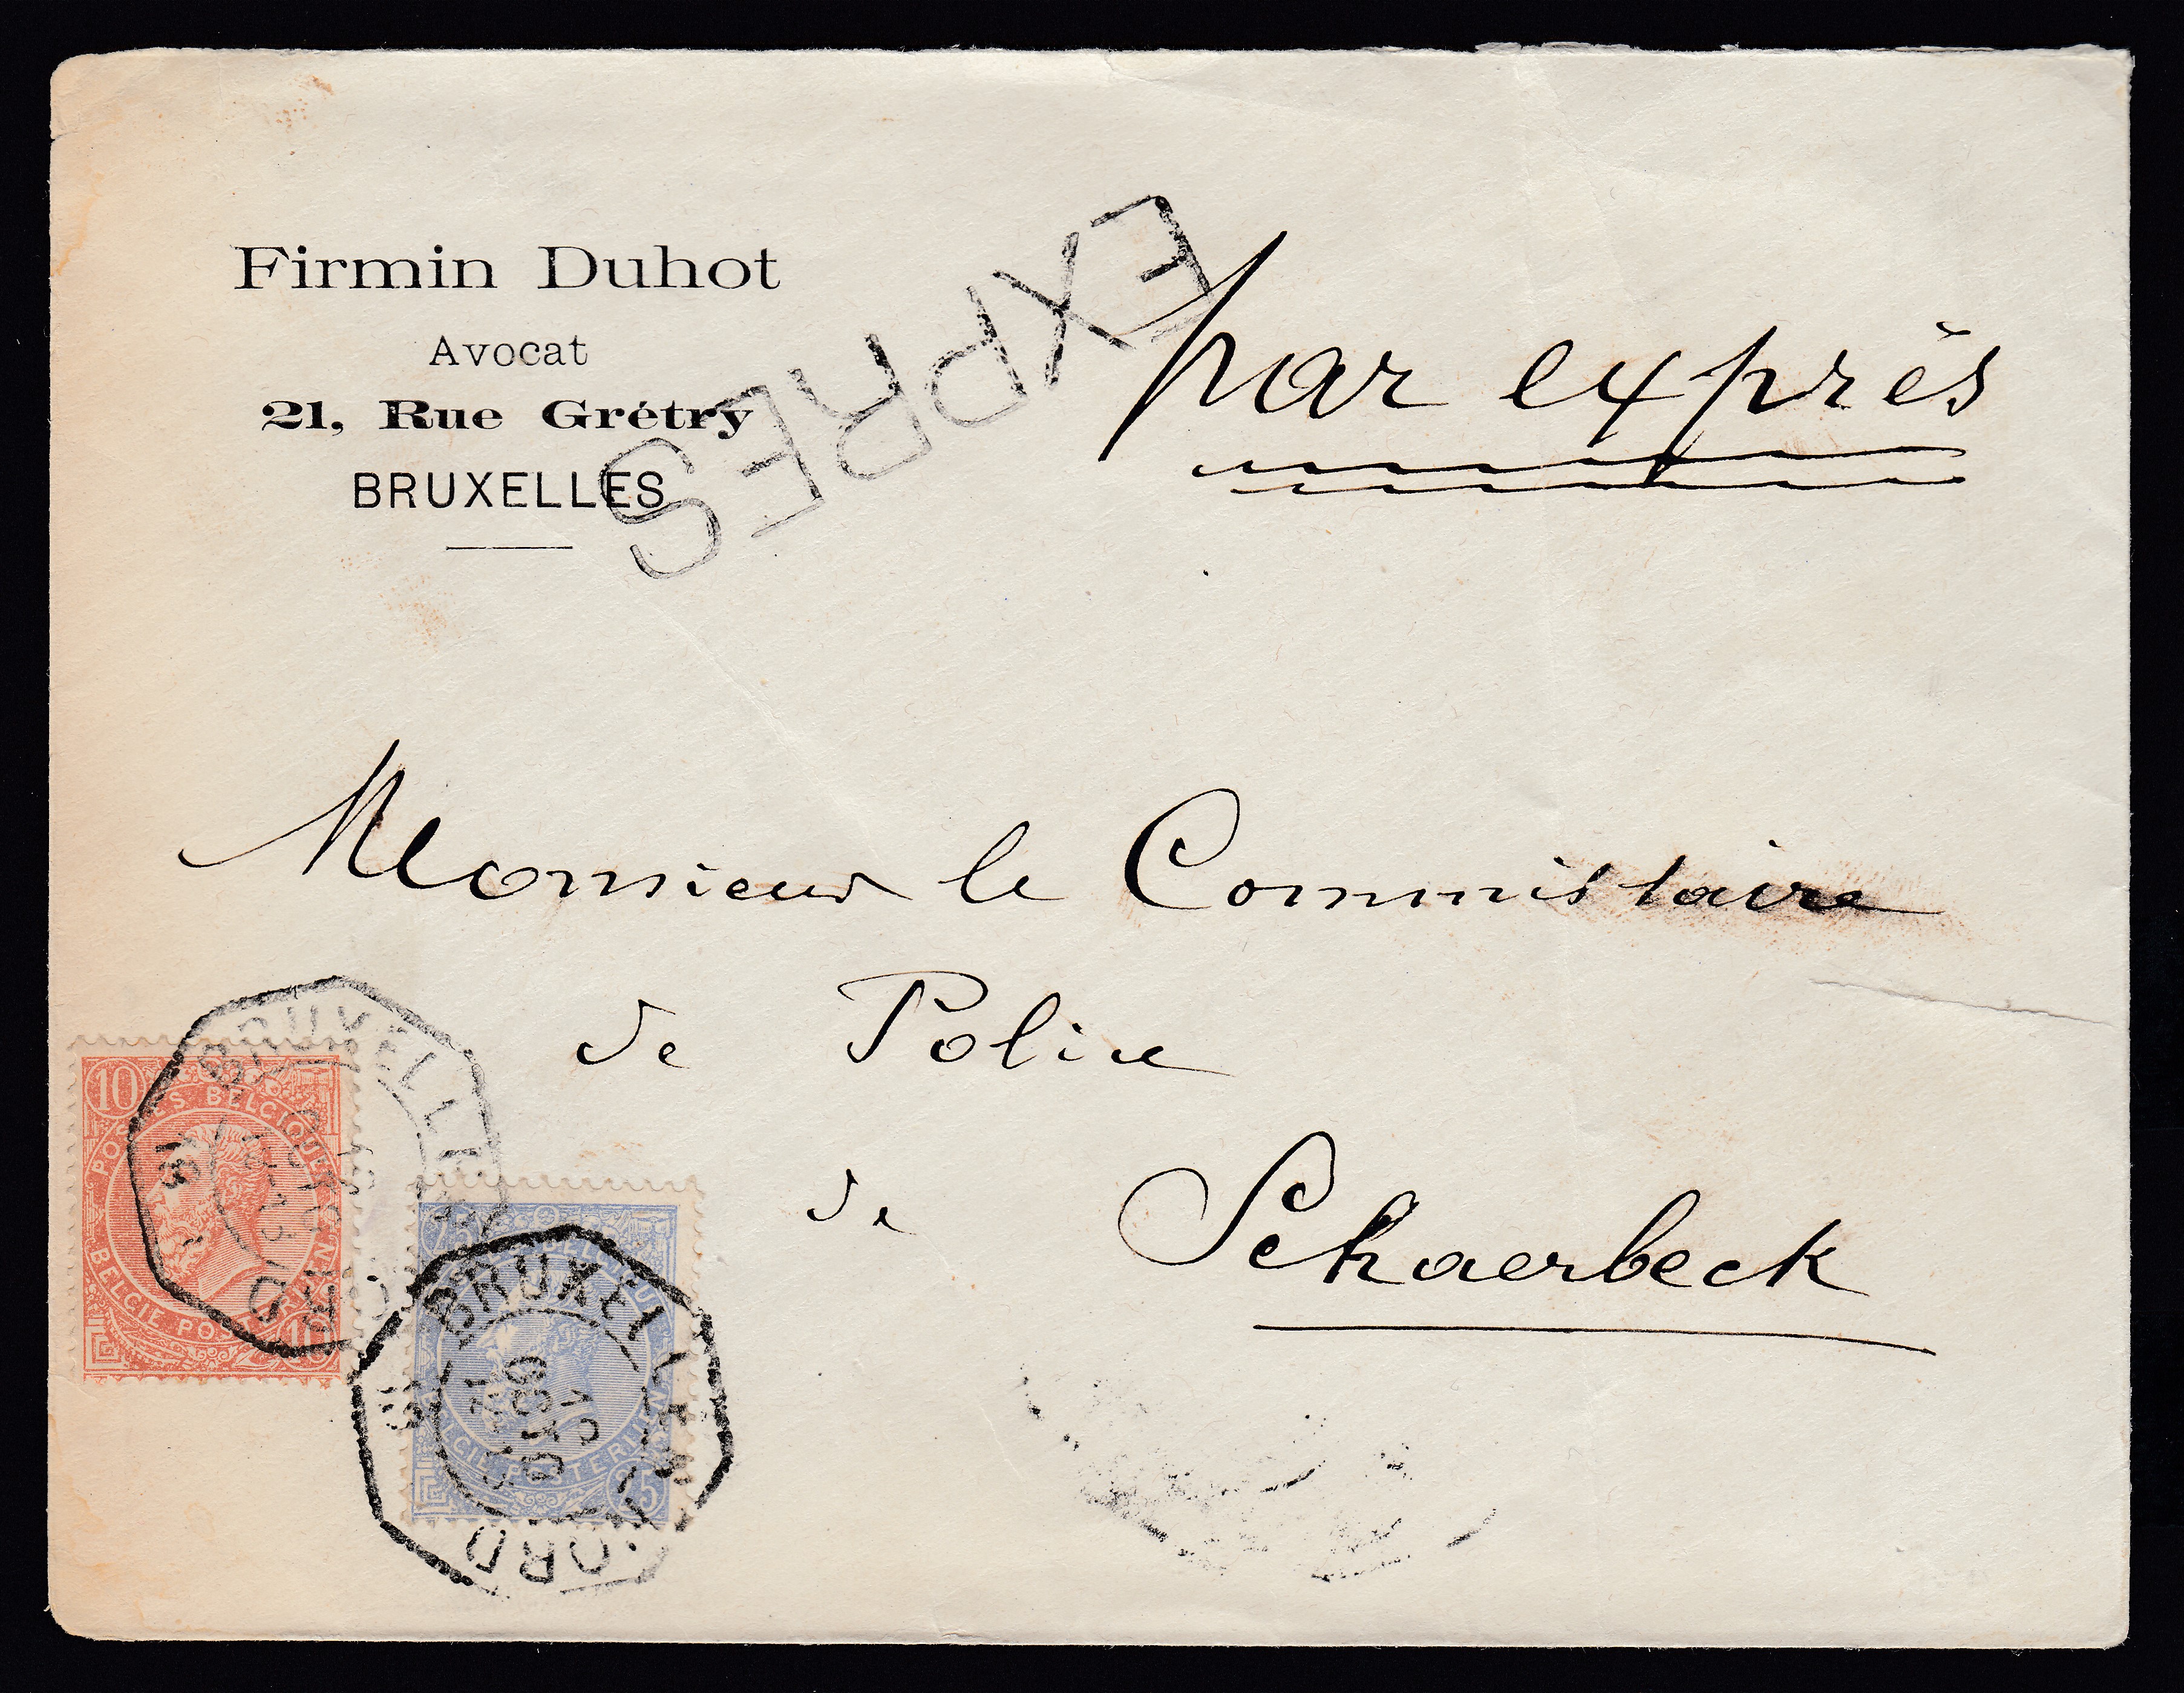 Firmin Duhot
Avocat
21, Rue Grétry
BRUXELLES
EXPRES
par exprès
Monsieur le Commissaire
de Police
de Schaerbeck
10
POSTES BELGIQUES
BELGIE POSTERIJEN
10
BRUXELLES
NORD
25
BELGIE POSTERIJEN
25
BRUXELLES
NORD